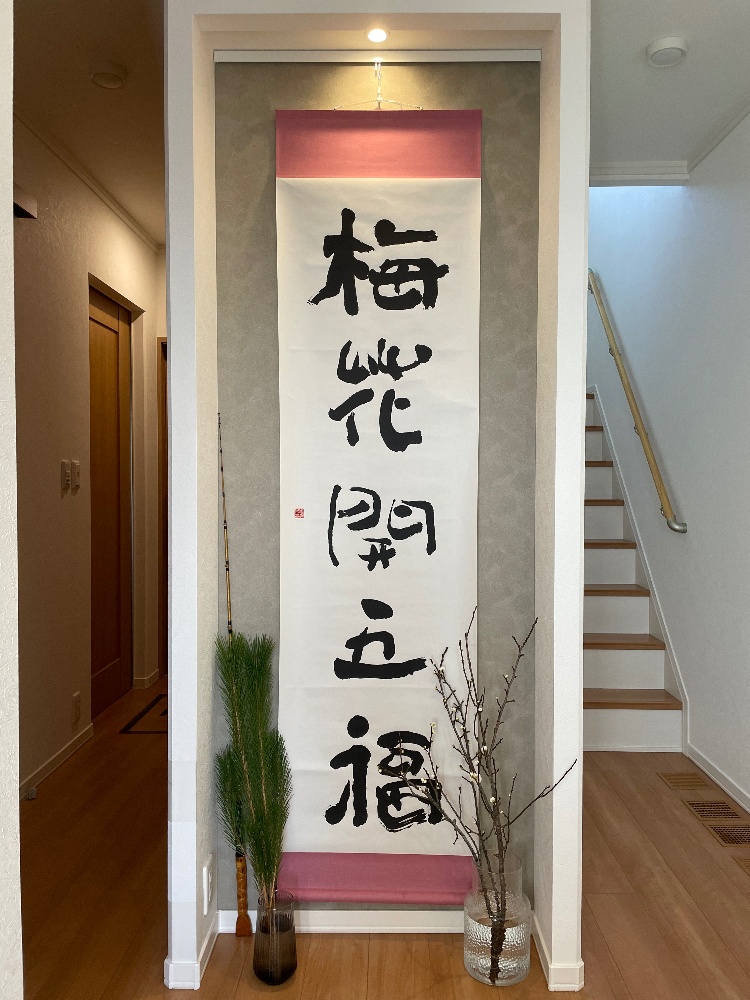 梅花開五福